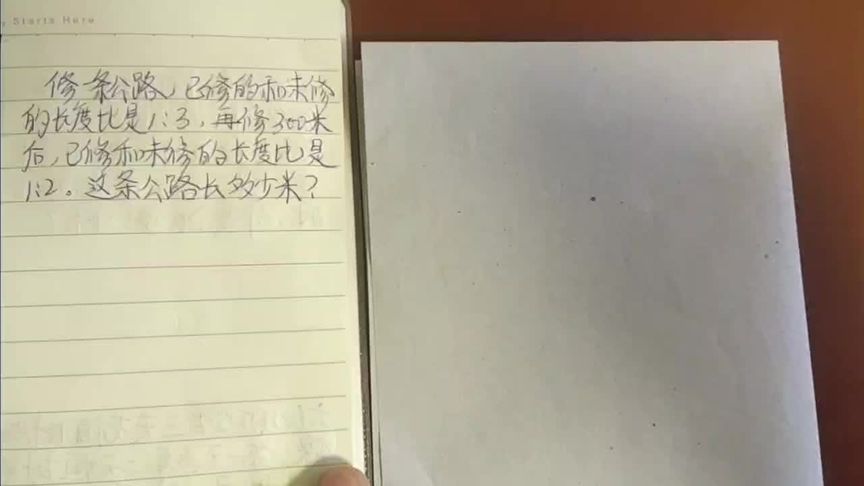 y Starts Here
修一条公路，已修的和未修
的长度比是1:3，再修300米
后，已修和未修的长度比是
1:2。这条公路长多少米？